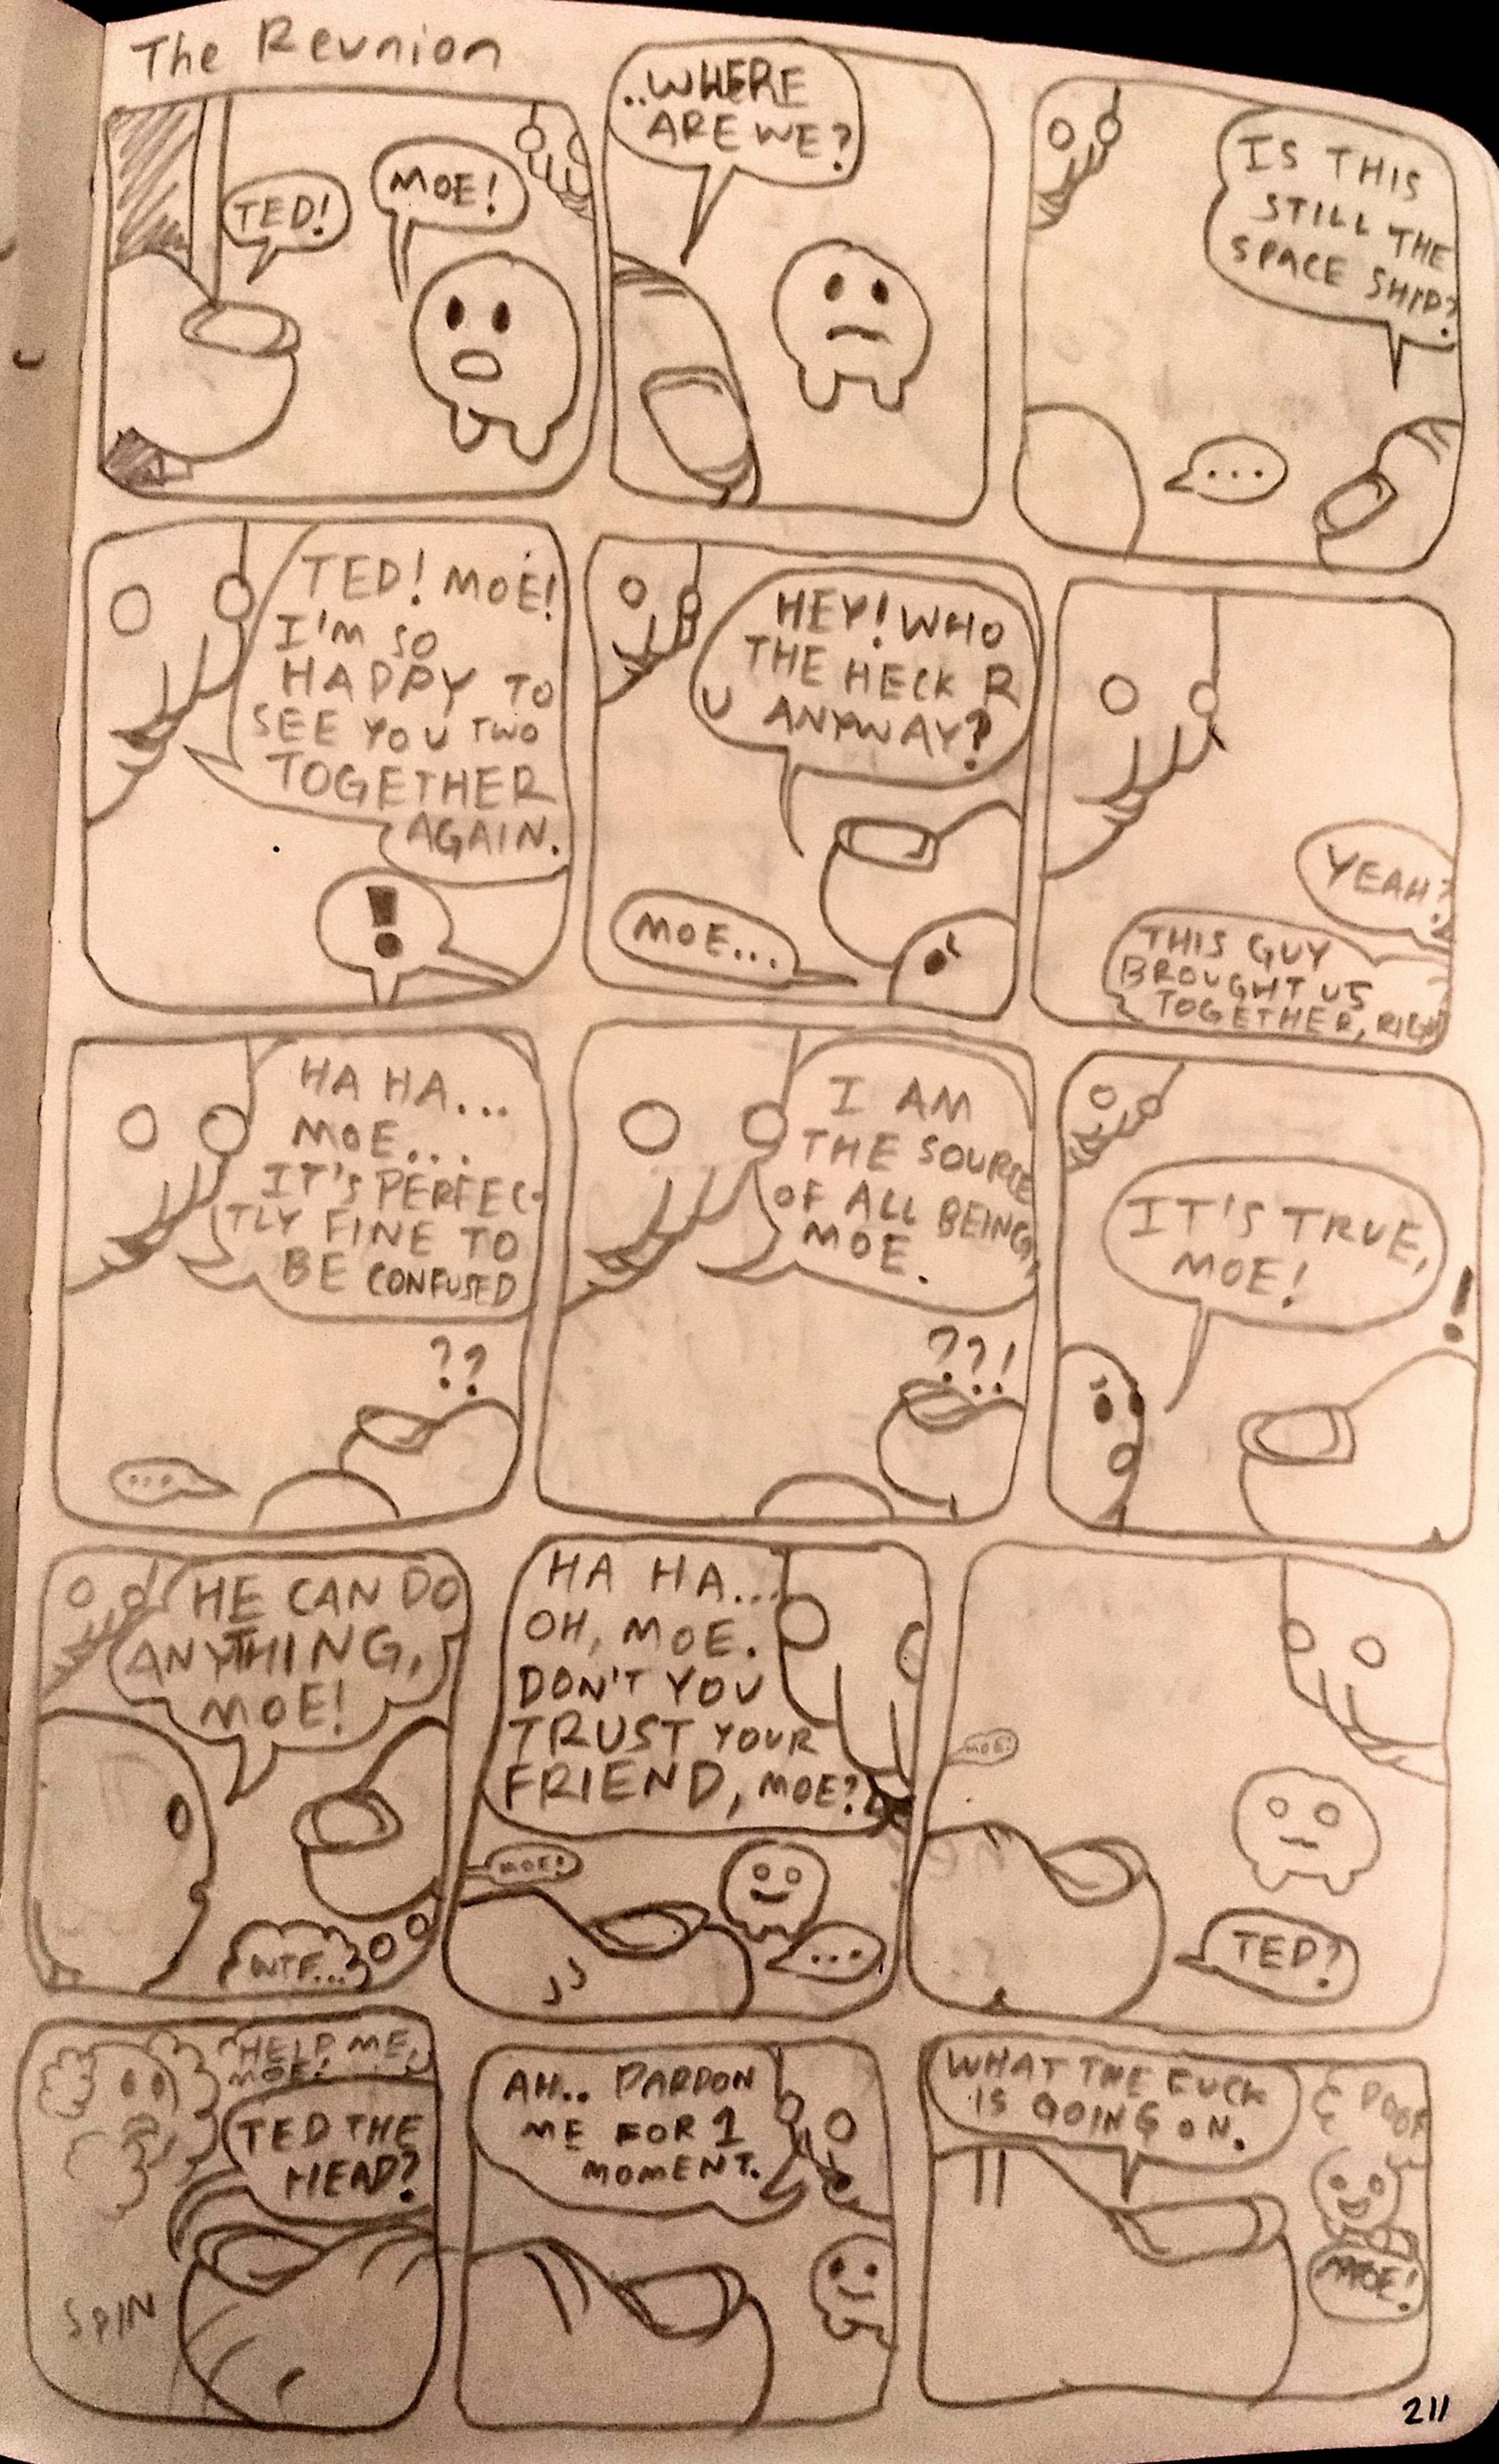 The Reunion
TED!
MOE!
..WHERE
ARE WE?
IS THIS
STILL THE
SPACE SHIP?
...
TED! MOE!
I'M SO
HAPPY TO
SEE YOU TWO
TOGETHER
AGAIN.
!
HEY! WHO
THE HECK R
U ANYWAY?
MOE...
YEAH?
THIS GUY
BROUGHT US
TOGETHER, RIGH
HA HA...
MOE...
IT'S PERFEC-
TLY FINE TO
BE CONFUSED
??
...
I AM
THE SOURCE
OF ALL BEING,
MOE.
??!
IT'S TRUE,
MOE!
!
HE CAN DO
ANYTHING,
MOE!
WTF...
HA HA...
OH, MOE.
DON'T YOU
TRUST YOUR
FRIEND, MOE?
MOE!
...
MOE!
TED?
HELP ME,
MOE!
TED THE
HEAD?
SPIN
AH.. PARDON
ME FOR 1
MOMENT.
WHAT THE FUCK
IS GOING ON.
POOF
MOE!
211